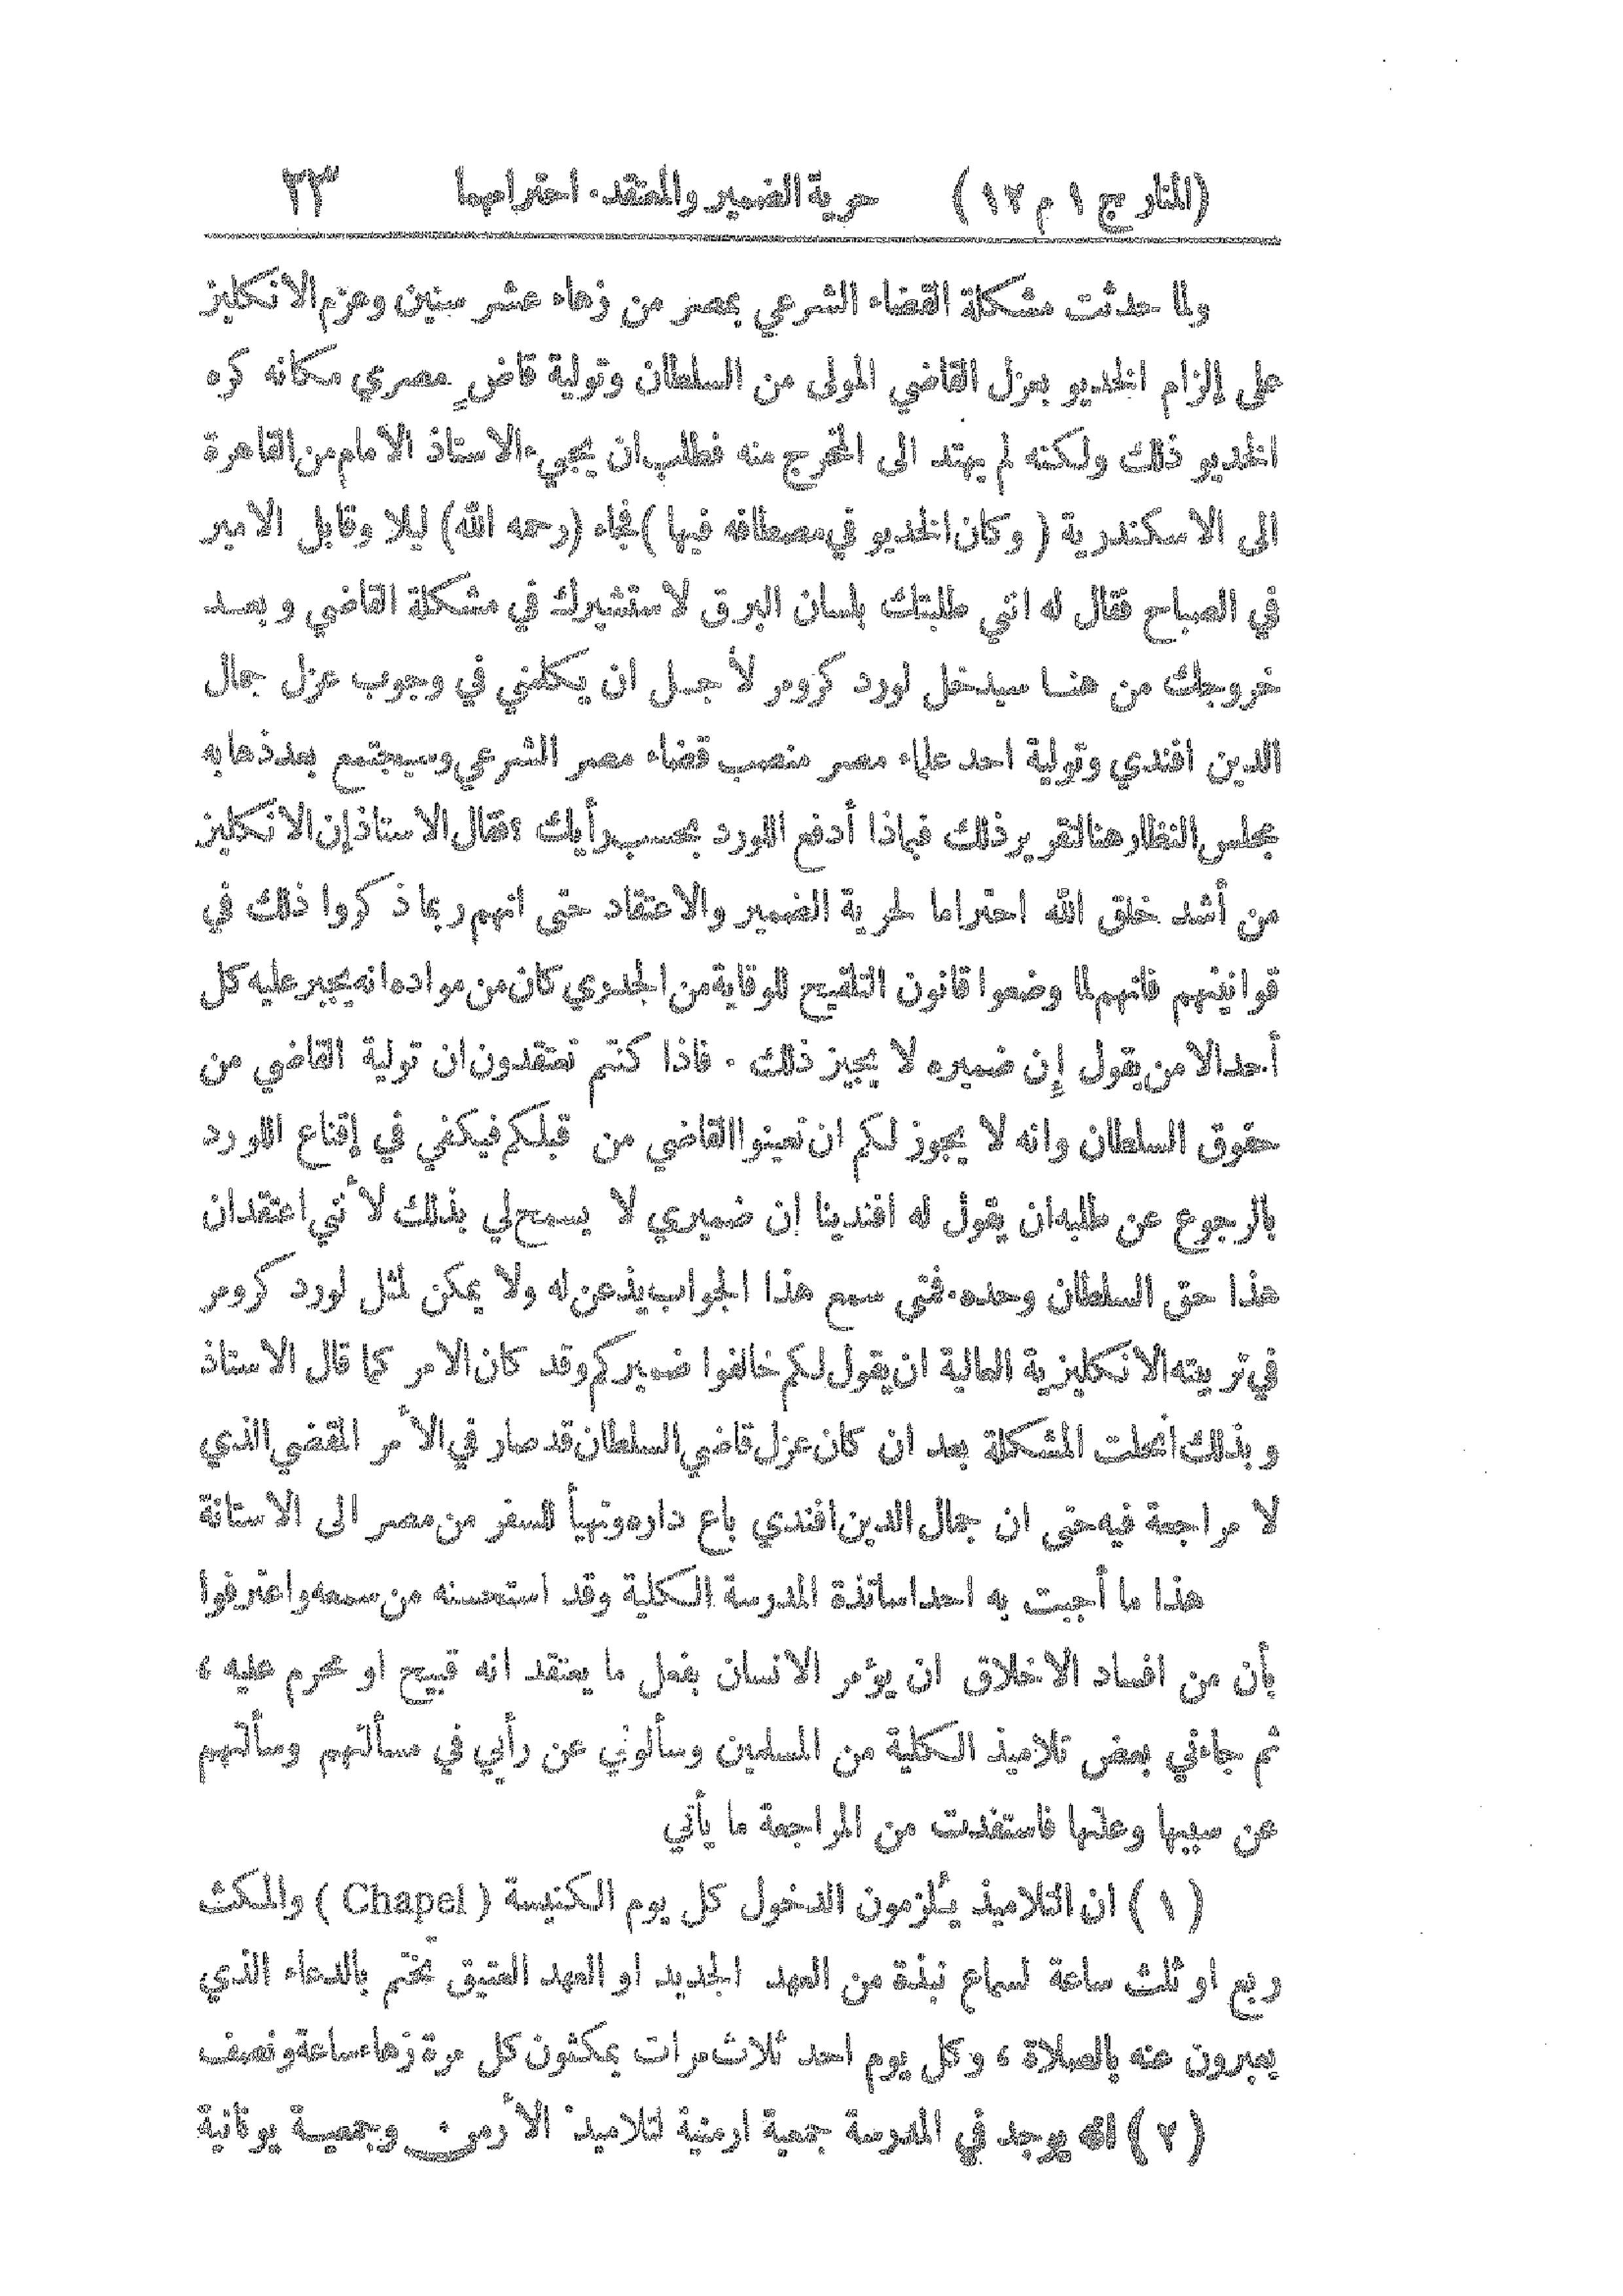 (المنار ج ١ م ١٢) حرية الضمير والمعتقد. احترامهما ٢٣
ولما حدثت مشكلة القضاء الشرعي بمصر من زهاء عشر سنين وعزم الانكليز
على إلزام الخديو بعزل القاضي المولى من السلطان وتولية قاضٍ مصري مكانه كره
الخديو ذلك ولكنه لم يهتد الى المخرج منه فطلب ان يجيء الاستاذ الامام من القاهرة
الى الاسكندرية ( وكان الخديو في مصطافه فيها ) فجاء (رحمه الله) ليلا وقابل الامير
في الصباح فقال له اني طلبتك بلسان البرق لاستشيرك في مشكلة القاضي وبعد
خروجك من هنا سيدخل لورد كرومر لأجل ان يكلمني في وجوب عزل جمال
الدين افندي وتولية احد علماء مصر منصب قضاء مصر الشرعي وسيجتمع بعد ذهابه
مجلس النظار هنا لتقرير ذلك فبماذا أدفع اللورد بحسب رأيك ؟ فقال الاستاذ إن الانكليز
من أشد خلق الله احتراما لحرية الضمير والاعتقاد حتى انهم ربما ذكروا ذلك في
قوانينهم فانهم لما وضعوا قانون التلقيح للوقاية من الجدري كان من مواده انه يجبر عليه كل
أحد الا من يقول إن ضميره لا يجيز ذلك . فاذا كنتم تعتقدون ان تولية القاضي من
حقوق السلطان وانه لا يجوز لكم ان تعينوا القاضي من قبلكم فيكفي في إقناع اللورد
بالرجوع عن طلبه ان يقول له افندينا إن ضميري لا يسمح لي بذلك لأني اعتقد ان
هذا حق السلطان وحده . فمتى سمع هذا الجواب يذعن له ولا يمكن لمثل لورد كرومر
في تربيته الانكليزية العالية ان يقول لكم خالفوا ضميركم وقد كان الامر كما قال الاستاذ
وبذلك انحلت المشكلة بعد ان كان عزل قاضي السلطان قد صار في الأمر المقضي الذي
لا مراجعة فيه حتى ان جمال الدين افندي باع داره وتهيأ للسفر من مصر الى الاستانة
هذا ما أجبت به احد اساتذة المدرسة الكلية وقد استحسنه من سمعه واعترفوا
بأن من افساد الاخلاق ان يؤمر الانسان بفعل ما يعتقد انه قبيح او محرم عليه ،
ثم جاءني بعض تلاميذ الكلية من المسلمين وسألوني عن رأيي في مسألتهم وسألتهم
عن سببها وعلتها فاستفدت من المراجعة ما يأتي
( ١ ) ان التلاميذ يُلزمون الدخول كل يوم الكنيسة ( Chapel ) والمكث
ربع او ثلث ساعة لسماع نبذة من العهد الجديد او العهد العتيق تختم بالدعاء الذي
يعبرون عنه بالصلاة ، وكل يوم احد ثلاث مرات يمكثون كل مرة زهاء ساعة ونصف
( ٢ ) انه يوجد في المدرسة جمعية ارمنية لتلاميذ الأرمن وجمعية يونانية